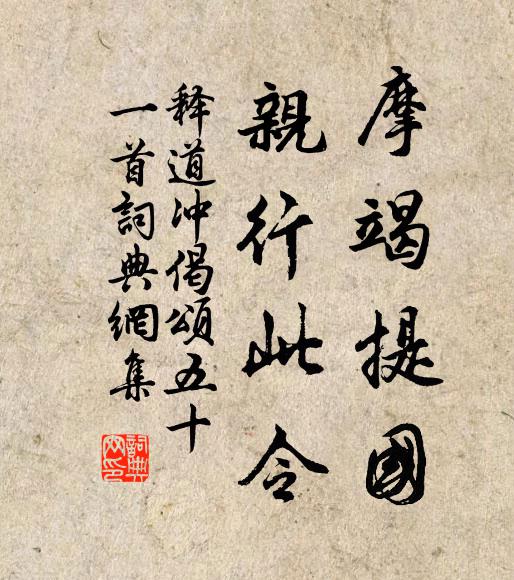 摩竭提國
親行此令
释道冲偈頌五十
一首詞典網集
詞典
网印